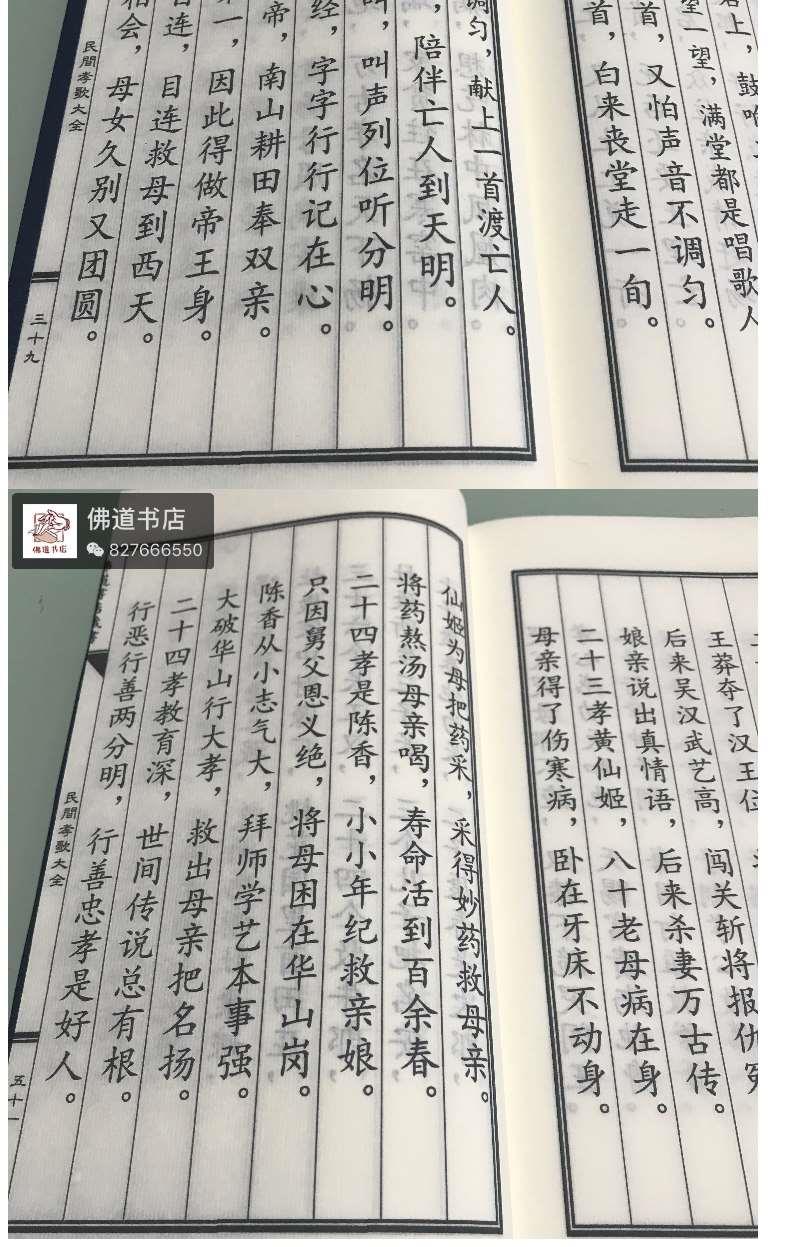 上，鼓
望一望，满堂都是唱歌人
首，又怕声音不调匀。
首，白来丧堂走一旬。
调匀，献上一首渡亡人。
，陪伴亡人到天明。
叫，叫声列位听分明。
经，字字行行记在心。
帝，南山耕田奉双亲。
一，因此得做帝王身。
目连，目连救母到西天。
相会，母女久别又团圆。
民間孝歌大全
三十九
佛道书店
827666550
佛道书店
王莽夺了汉王位
闯关斩将报仇冤
后来吴汉武艺高，后来杀妻万古传。
娘亲说出真情语，
二十三孝黄仙姬，八十老母病在身。
母亲得了伤寒病，卧在牙床不动身。
仙姬为母把药采，采得妙药救母亲。
将药熬汤母亲喝，寿命活到百余春。
二十四孝是陈香，小小年纪救亲娘。
只因舅父恩义绝，将母困在华山岗。
陈香从小志气大，拜师学艺本事强。
大破华山行大孝，救出母亲把名扬。
二十四孝教育深，世间传说总有根。
行恶行善两分明，行善忠孝是好人。
民間孝歌大全
五十一